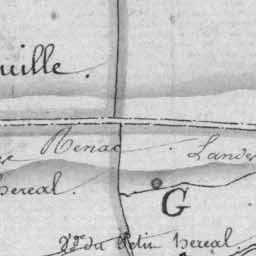 uille.
Renac Lande
hereal.
G
V.ge du Petit hereal.